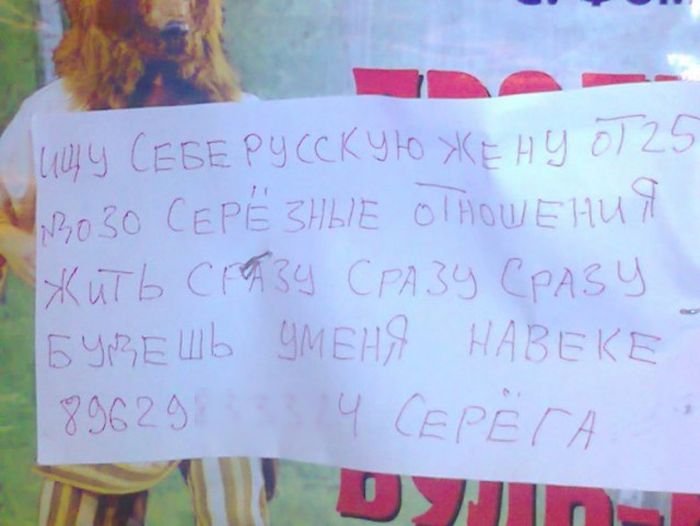 ИЩУ СЕБЕ РУССКУЮ ЖЕНУ ОТ 25
ДО 30 СЕРЁЗНЫЕ ОТНОШЕНИЯ
ЖИТЬ СРАЗУ СРАЗУ СРАЗУ
БУДЕШЬ УМЕНЯ НАВЕКЕ
89629 4 СЕРЁГА